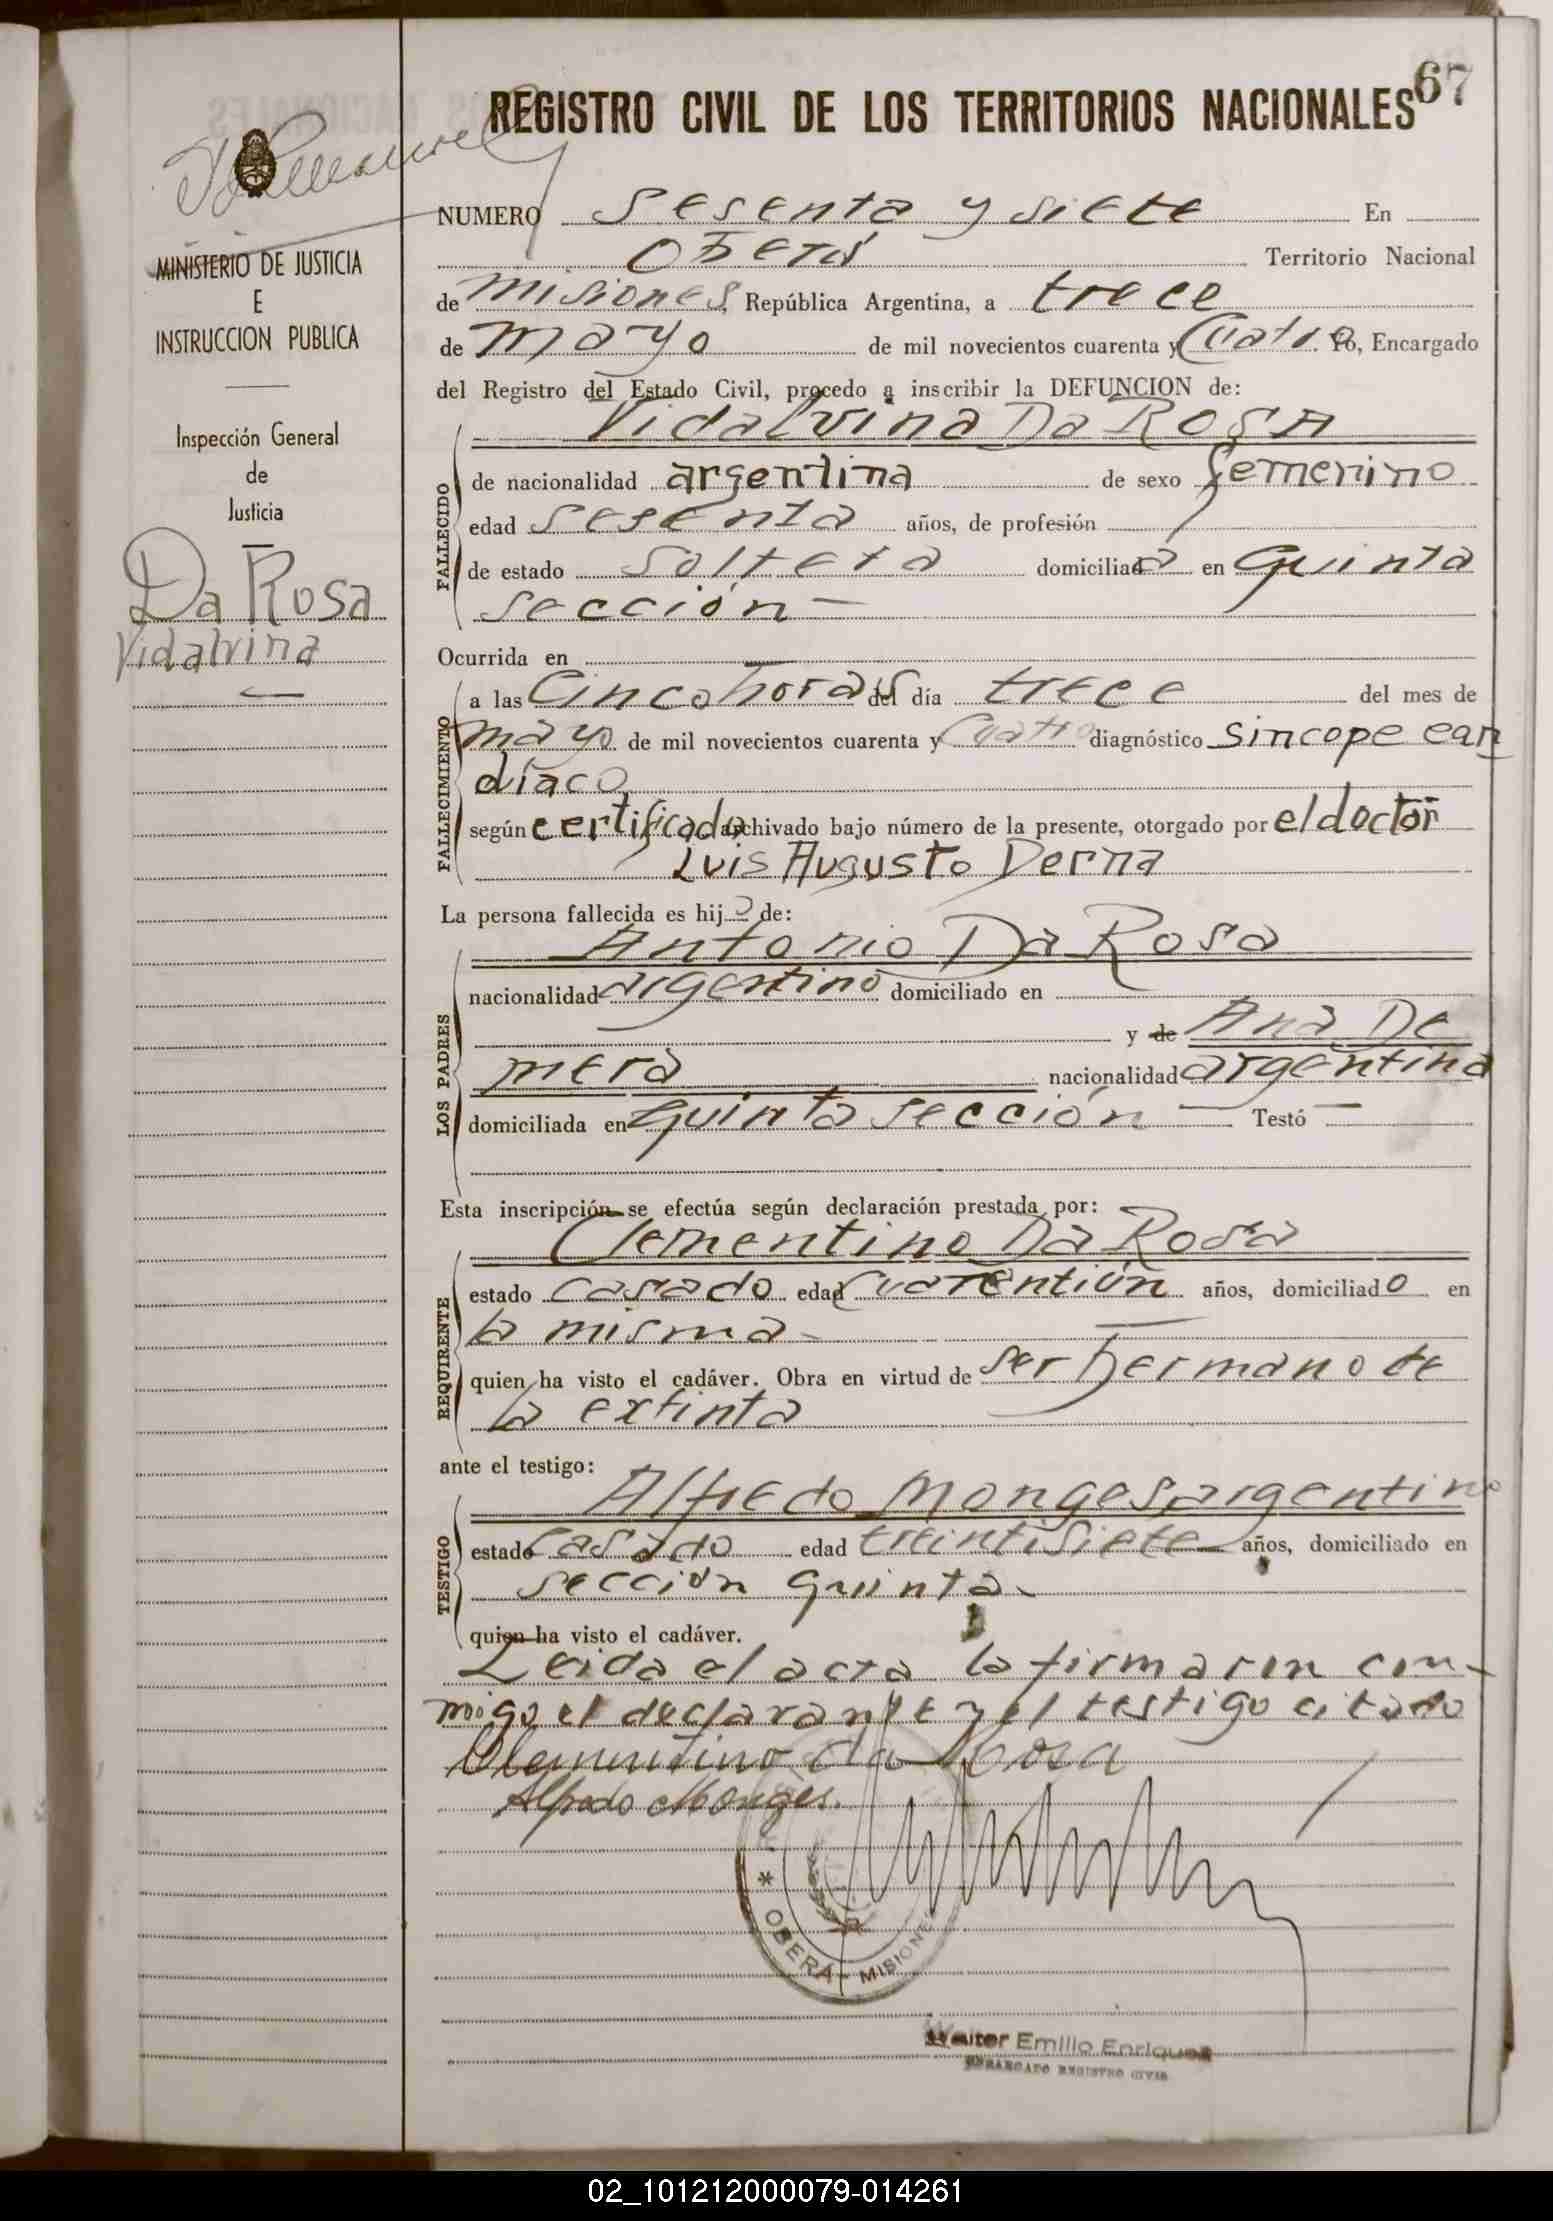 67
REGISTRO CIVIL DE LOS TERRITORIOS NACIONALES
MINISTERIO DE JUSTICIA
E
INSTRUCCION PUBLICA
Inspección General
de
Justicia
Da Rosa
Vidalvina
NUMERO Sesenta y siete En
Oberá Territorio Nacional
de Misiones, República Argentina, a trece
de mayo de mil novecientos cuarenta y Cuatro. Yo, Encargado
del Registro del Estado Civil, procedo a inscribir la DEFUNCION de:
Vidalvina Da Rosa
FALLECIDO
de nacionalidad argentina de sexo femenino
edad sesenta años, de profesión /
de estado soltera domiciliada en Quinta
sección —
Ocurrida en
FALLECIMIENTO
a las Cinco horas del día trece del mes de
mayo de mil novecientos cuarenta y Cuatro diagnóstico sincope car
díaco
según certificado archivado bajo número de la presente, otorgado por el doctor
Luis Augusto Derna
La persona fallecida es hija de:
LOS PADRES
Antonio Da Rosa
nacionalidad argentino domiciliado en
y de Ana De
mera nacionalidad argentina
domiciliada en Quinta sección — Testó —
Esta inscripción se efectúa según declaración prestada por:
REQUIRENTE
Clementino Da Rosa
estado casado edad cuarentiún años, domiciliado en
la misma —
quien ha visto el cadáver. Obra en virtud de ser hermano de
la extinta
ante el testigo:
TESTIGO
Alfredo Monges, argentino
estado casado edad treintisiete años, domiciliado en
sección quinta -
quien ha visto el cadáver.
Leida el acta la firmaron con-
migo el declarante y el testigo citado
Clementino da Rosa
Alfredo Monges.
* OBERÁ - MISIONES
Walter Emilio Enriquez
ENCARGADO REGISTRO CIVIL
02_101212000079-014261